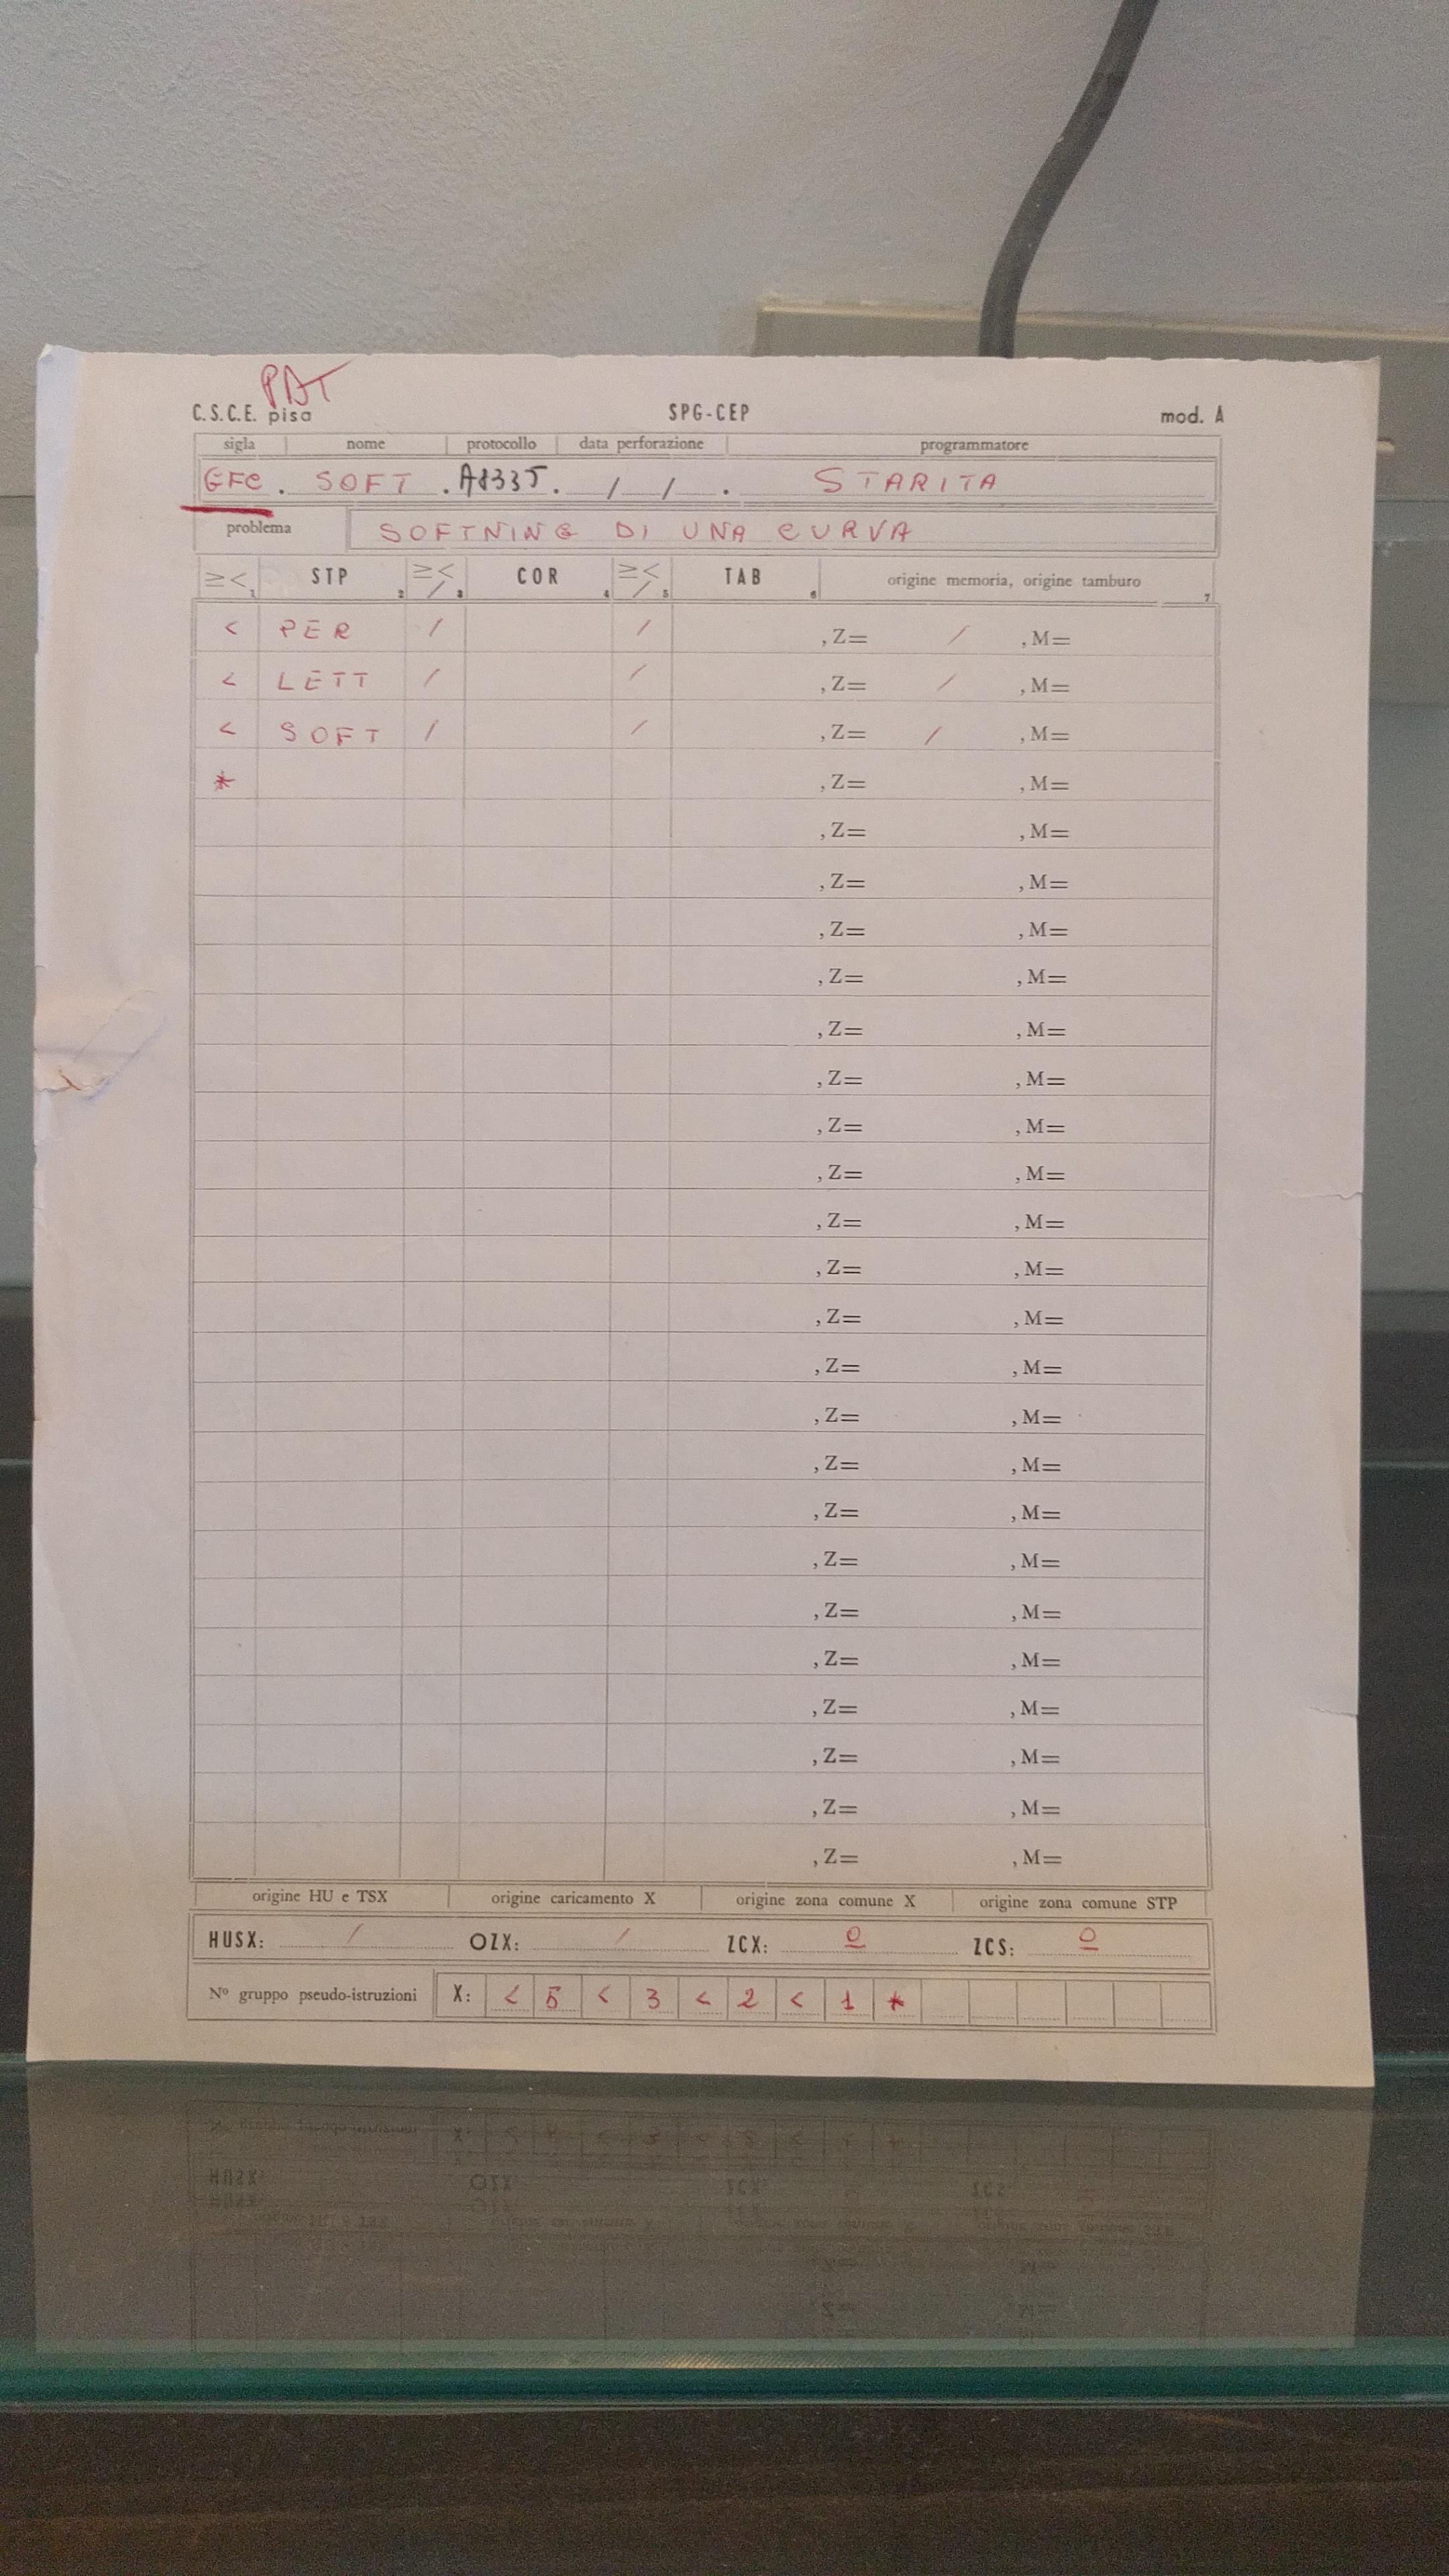 PAT
C.S.C.E. pisa SPG-CEP mod. A
sigla nome protocollo data perforazione programmatore
GFC . SOFT . A8335 . / / . STARITA
problema SOFTNING DI UNA CURVA
≥< 1 STP 2 ≥< / 3 COR 4 ≥< / 5 TAB 6 origine memoria, origine tamburo 7
< PER / / ,Z= / ,M=
< LETT / / ,Z= / ,M=
< SOFT / / ,Z= / ,M=
* ,Z= ,M=
,Z= ,M=
,Z= ,M=
,Z= ,M=
,Z= ,M=
,Z= ,M=
,Z= ,M=
,Z= ,M=
,Z= ,M=
,Z= ,M=
,Z= ,M=
,Z= ,M=
,Z= ,M=
,Z= ,M=
,Z= ,M=
,Z= ,M=
,Z= ,M=
,Z= ,M=
,Z= ,M=
,Z= ,M=
,Z= ,M=
,Z= ,M=
,Z= ,M=
origine HU e TSX origine caricamento X origine zona comune X origine zona comune STP
HUSX: / OZX: / ZCX: 0 ZCS: 0
Nº gruppo pseudo-istruzioni X: < 5 < 3 < 2 < 1 *